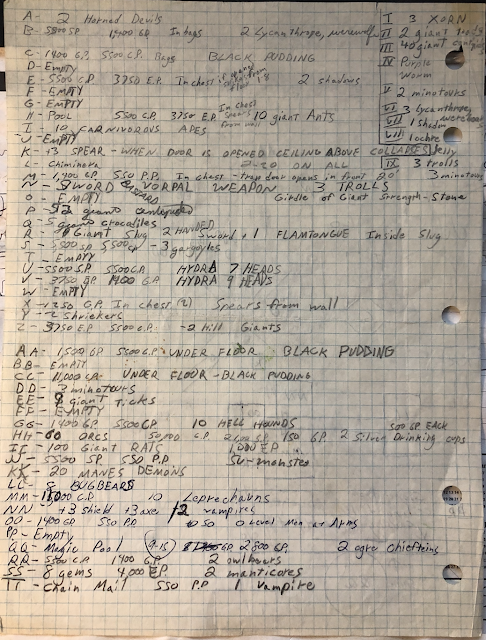 A- 2 Horned Devils
B- 5500 SP 1400 GP In bags 2 Lycanthrope, werewolf
C- 1400 G.P. 5500 C.P. Bags BLACK PUDDING
D- EMPTY
E- 5500 C.P. 3750 E.P. In chest 2 shadows
F- EMPTY
G- EMPTY
H- POOL 5500 C.P. 3750 E.P. In chest spears from wall 10 giant Ants
I- 10 CARNIVOROUS APES
J- EMPTY
K- +3 SPEAR - WHEN DOOR IS OPENED CEILING ABOVE COLLAPSES
L- Chiminera 2-20 ON ALL
M- 1,400 G.P. 550 P.P. In chest - trap door opens in front 20' 3 minotours
N- SWORD VORPAL WEAPON 3 TROLLS
O- EMPTY Girdle of Giant Strength - Stone
P- 52 giant centipedes
Q- 5 giant crocadiles
R- Giant Slug 2 HANDED Sword +1 FLAMTONGUE Inside Slug
S- 5500 S.P. 5500 C.P. - 3 gargoyles
T- EMPTY
U- 5500 S.P. 5500 C.P. HYDRA 7 HEADS
V- 3750 1400 G.P. HYDRA 9 HEADS
W- EMPTY
X- 1350 G.P. In chest (2) Spears from wall
Y- 2 shriekers
Z- 3750 E.P. 5500 C.P. -2 Hill Giants
AA- 1,500 GP 5500 C.P. UNDER FLOOR BLACK PUDDING
BB- EMPTY
CC- 11,000 UNDER FLOOR - BLACK PUDDING
DD- 3 minotours
EE- 9 giant Ticks
FF- EMPTY
GG- 1400 G.P. 5500 C.P. 10 HELL HOUNDS
500 GP EACH
HH- 60 ORCS C.P. S.P. 150 GP. 2 Silver Drinking cups
II- 100 Giant RATS 1,000 E.P.
JJ- 5500 SP. 550 P.P. SU-monster
KK- 20 MANES DEMONS
LL- 8 BUGBEARS
MM- C.P. 10 Leprechauns
NN +3 shield +3 axe 2 vampires
OO- 1400 G.P. 550 P.P. 50 0 level Men at Arms
PP- Empty
QQ- Magic Pool GP 2800 G.P. 2 ogre chiefteins
RR- 5500 C.P. 1400 G.P. 2 owlbears
SS- 8 gems 4,000 E.P. 2 manticores
TT- Chain Mail 550 P.P 1 Vampire
I 3 XORN
II 2 giant
III 40 giant
IV Purple
Worm
V 2 minotours
VI 3 Lycanthrope, wereboars
VII 1 shadow
VIII 1 ochre
Jelly
IX 3 trolls